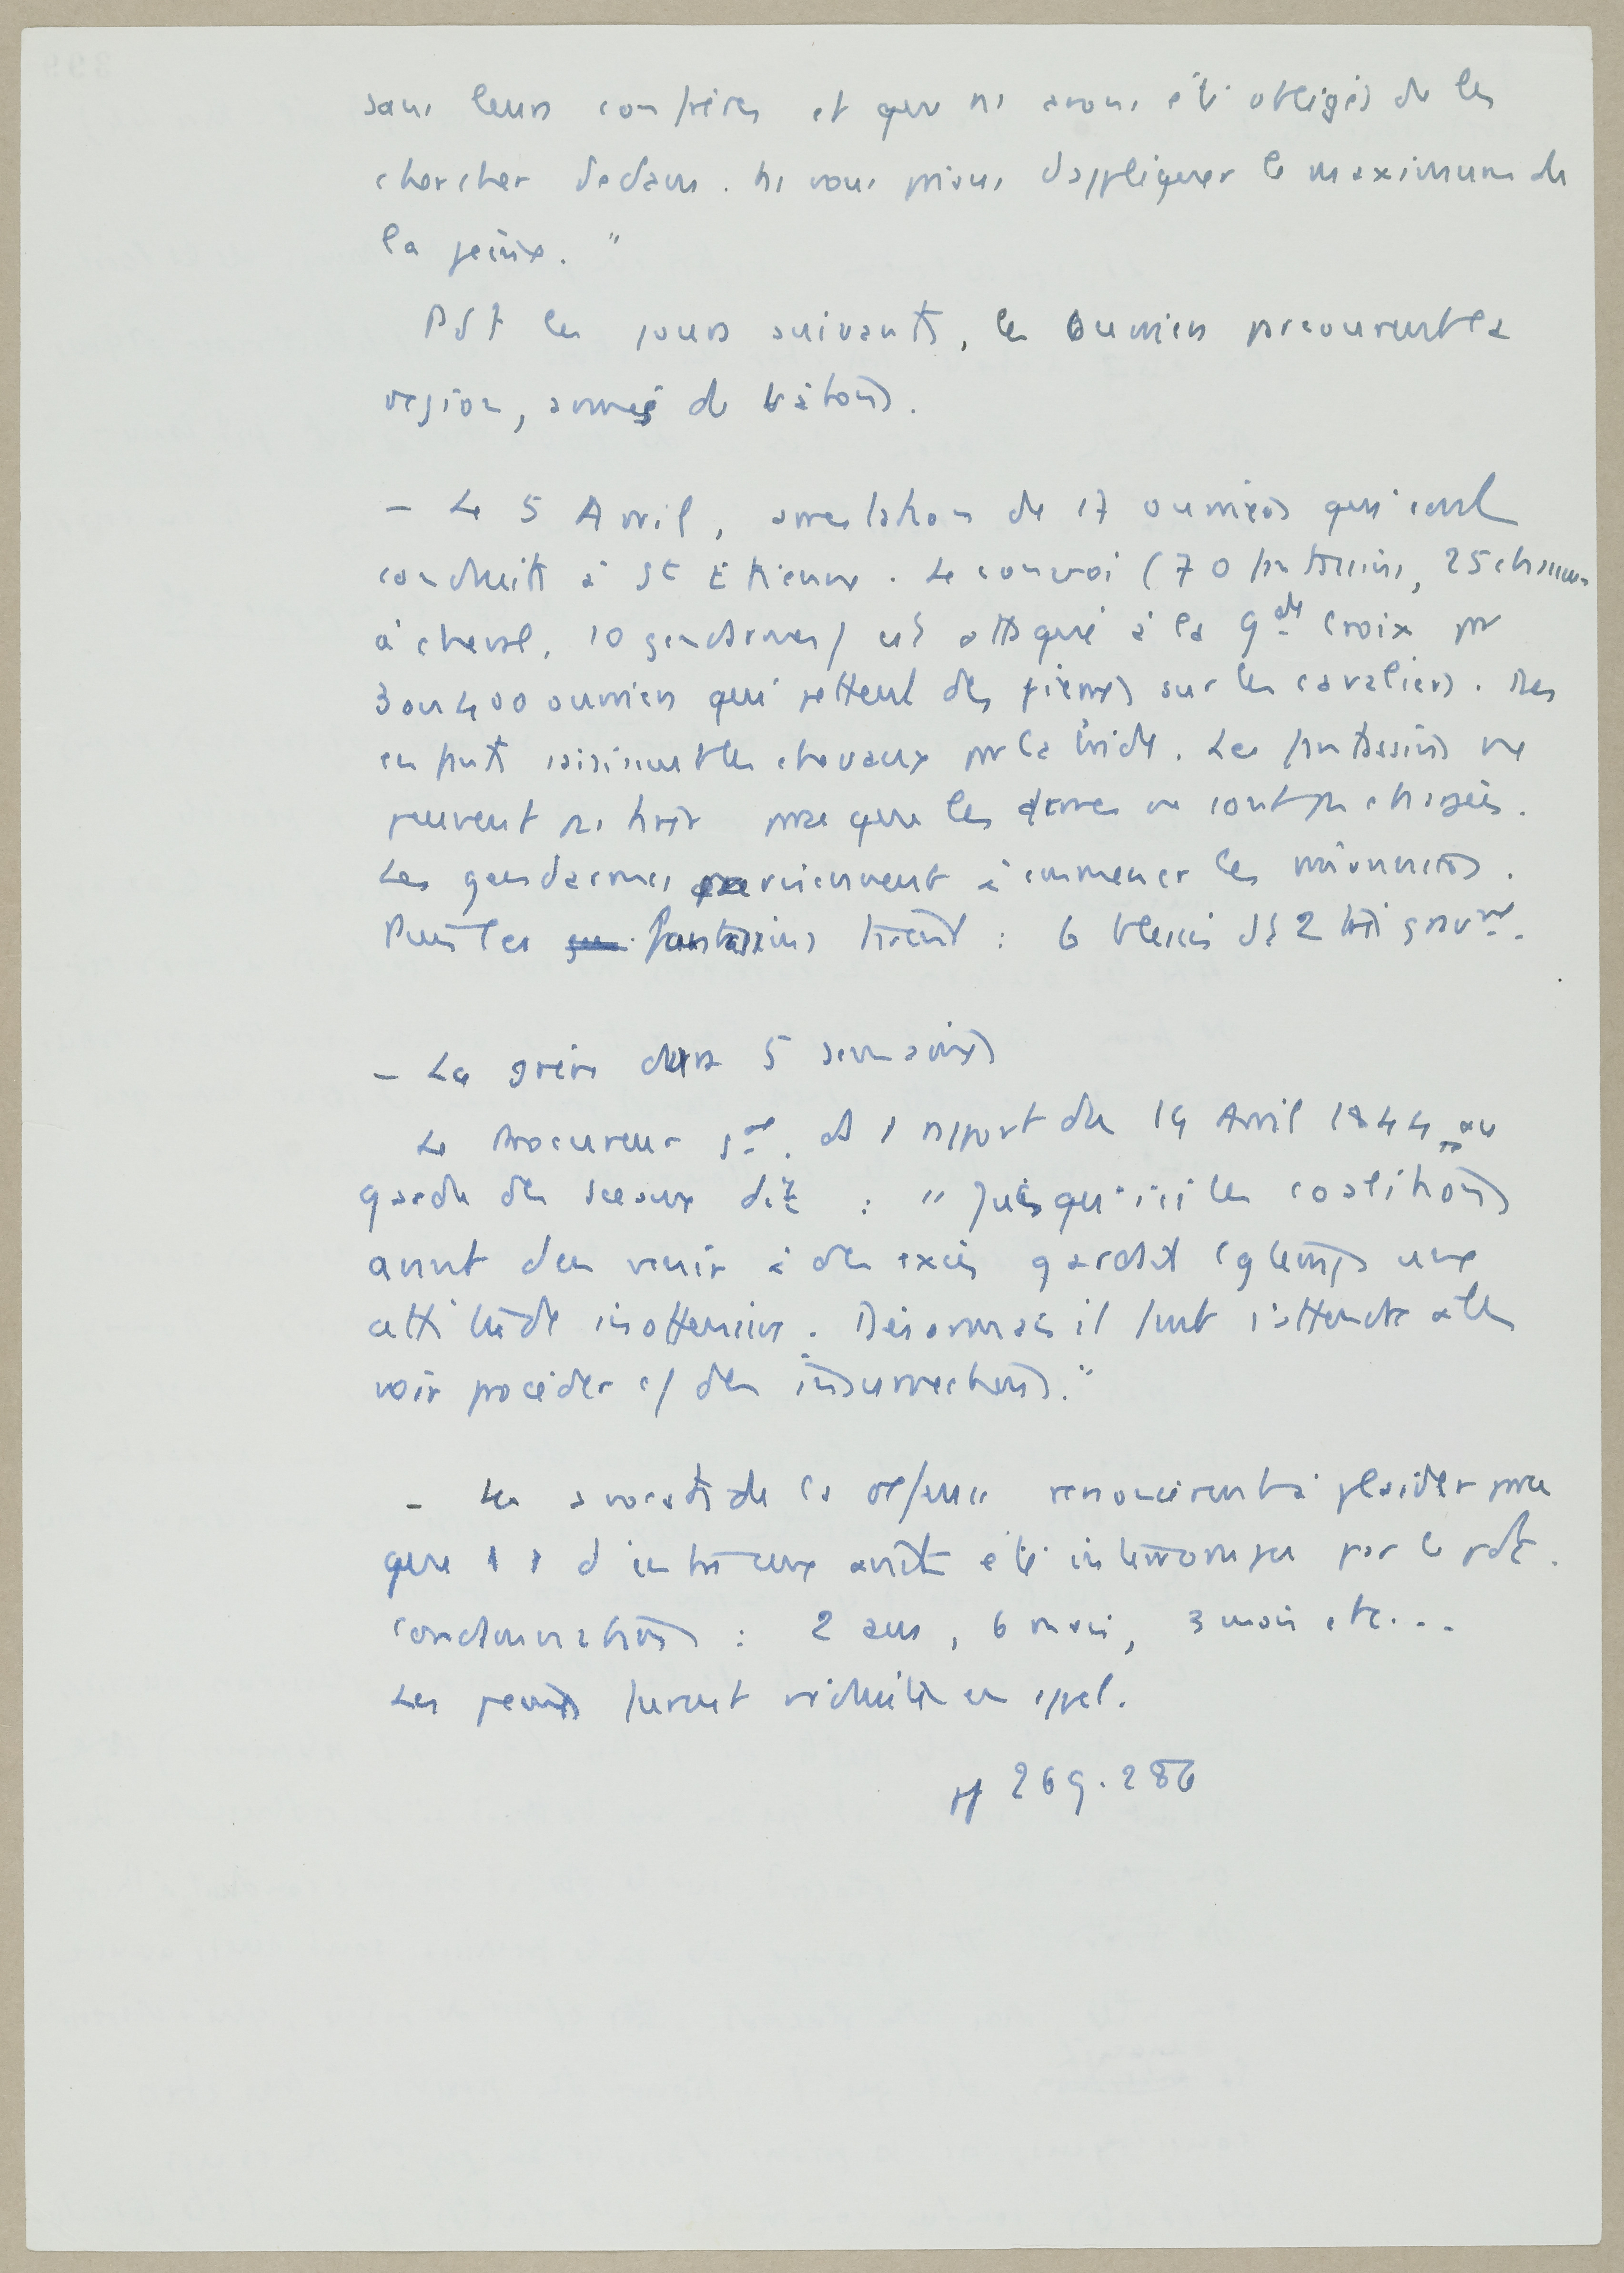 sans leurs confrères et que ns avons été obligés de les
chercher dedans. ns vous prions d'appliquer le maximum de
la peine."
Pdt les jours suivants, les ouvriers parcourent la
région, armés de bâtons.
- Le 5 Avril, arrestation de 17 ouvriers qui sont
conduits à St Etienne. Le convoi (70 fantassins, 25 chasseurs
à cheval, 10 gendarmes) est attaqué à la Gde Croix par
3 ou 400 ouvriers qui jettent des pierres sur les cavaliers. Des
enfants saisissent les chevaux par la bride. Les fantassins ne
peuvent pas tirer parce que les armes ne sont pas chargées.
Les gendarmes parviennent à emmener les prisonniers.
Puis les fantassins tirent : 6 blessés dt 2 très gravt.
- La grève dura 5 semaines
Le Procureur gal. ds 1 rapport du 14 Avril 1844 au
garde des sceaux dit : "Jusqu'ici les coalitions
avant d'en venir à des excès gardait lgtemps une
attitude inoffensive. Désormais il faut s'attendre à les
voir procéder c/ des insurrections."
- Les avocats de la défense renoncèrent à plaider parce
que 1 d'entre eux avait été interrompu par le pdt.
Condamnations : 2 ans, 6 mois, 3 mois etc...
Les peines furent réduites en appel.
pp 269.286